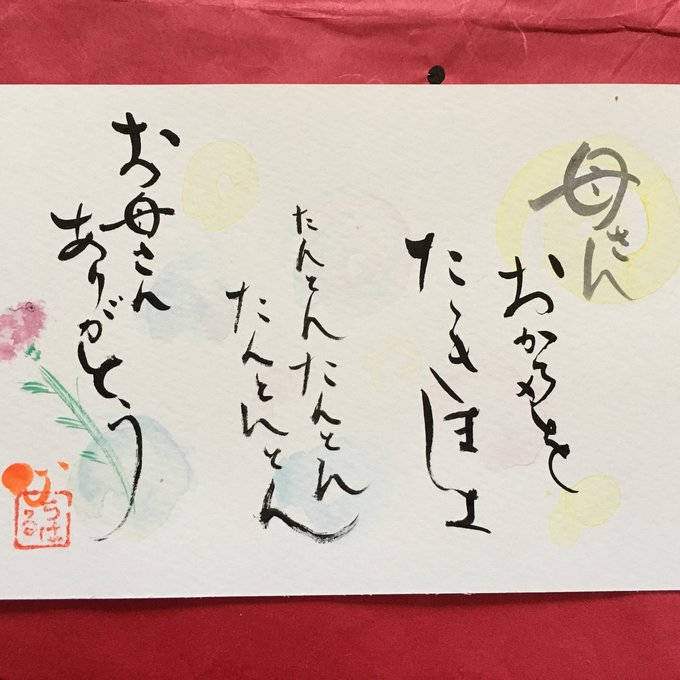 母さん
おかたを
たゝきましょ
たんとんたんとん
たんとんとん
お母さん
ありがとう
ちはる